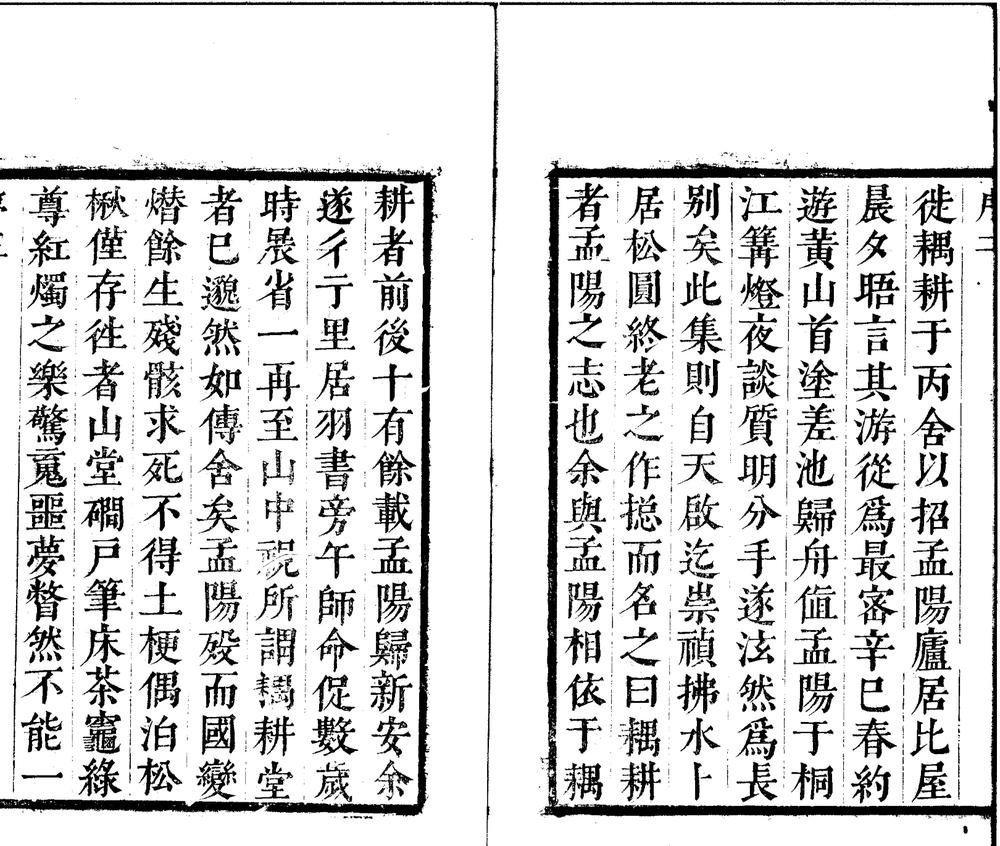 序二
徙耦耕于丙舍以招孟陽廬居比屋
晨夕晤言其游從爲最密辛巳春約
遊黄山首塗差池歸舟値孟陽于桐
江篝燈夜談質明分手遂泫然爲長
别矣此集則自天啟迄崇禎拂水卜
居松圓終老之作揔而名之曰耦耕
者孟陽之志也余與孟陽相依于耦
耕者前後十有餘載孟陽歸新安余
遂彳亍里居羽書旁午師命促數歲
時展省一再至山中視所謂耦耕堂
者已邈然如傳舍矣孟陽殁而國變
熸餘生殘骸求死不得土梗偶泊松
楸僅存徃者山堂磵戸筆床茶竈綠
尊紅燭之樂驚䰟噩夢瞥然不能一